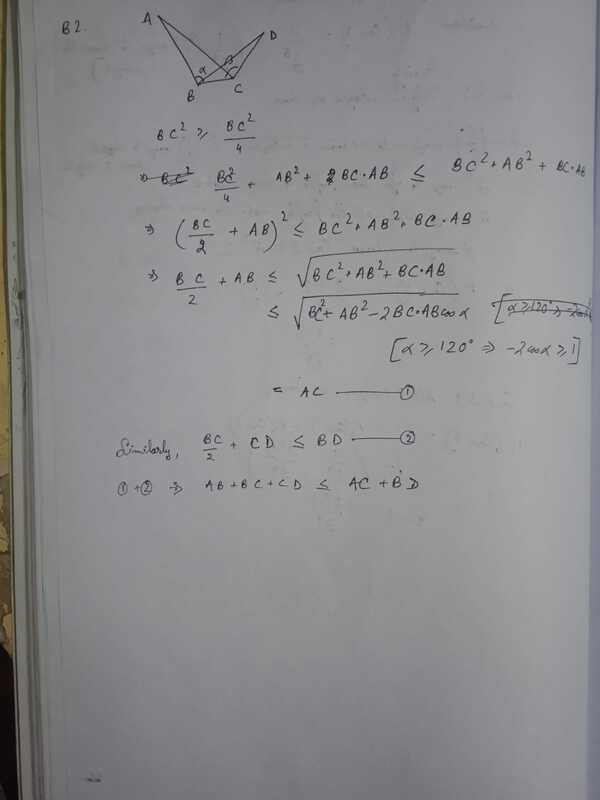 B2.
A
D
α
β
B
C
BC² ≥ BC²/4
⇒ BC²/4 + AB² + 2BC·AB ≤ BC² + AB² + BC·AB
⇒ (BC/2 + AB)² ≤ BC² + AB² + BC·AB
⇒ BC/2 + AB ≤ √(BC² + AB² + BC·AB)
≤ √(BC² + AB² - 2BC·AB cos α)
[α ≥ 120° ⇒ -2cos α ≥ 1]
= AC ——— ①
Similarly, BC/2 + CD ≤ BD ——— ②
① + ② ⇒ AB + BC + CD ≤ AC + BD